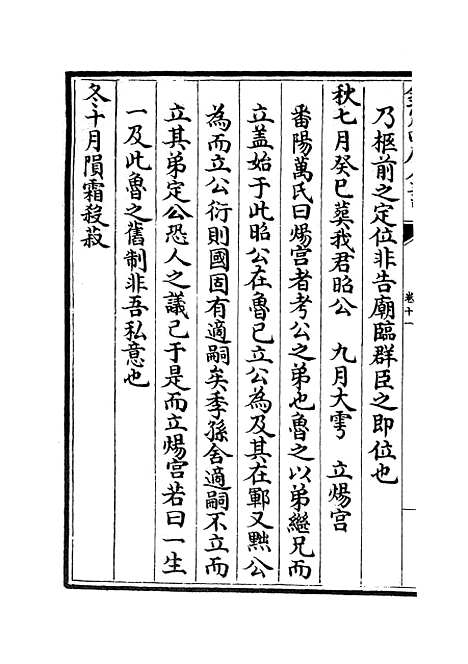 卷十一
乃柩前之定位非告廟臨群臣之即位也
秋七月癸巳葬我君昭公　九月大雩　立煬宫
番陽萬氏曰煬宫者考公之弟也魯之以弟繼兄而
立盖始于此昭公在魯已立公為及其在鄆又黜公
為而立公衍則國固有適嗣矣季孫舍適嗣不立而
立其弟定公恐人之議己于是而立煬宫若曰一生
一及此魯之舊制非吾私意也
冬十月隕霜殺菽